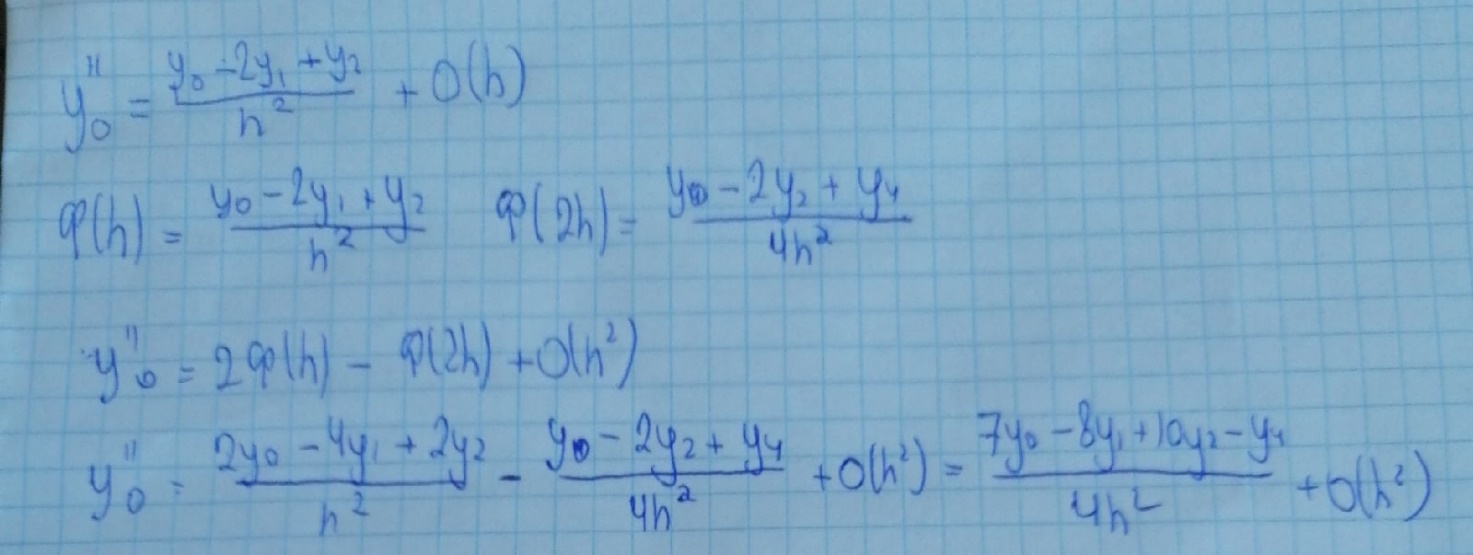 y₀'' = (y₀ - 2y₁ + y₂)/h² + O(h)
φ(h) = (y₀ - 2y₁ + y₂)/h² φ(2h) = (y₀ - 2y₂ + y₄)/4h²
y₀'' = 2φ(h) - φ(2h) + O(h²)
y₀'' = (2y₀ - 4y₁ + 2y₂)/h² - (y₀ - 2y₂ + y₄)/4h² + O(h²) = (7y₀ - 8y₁ + 10y₂ - y₄)/4h² + O(h²)